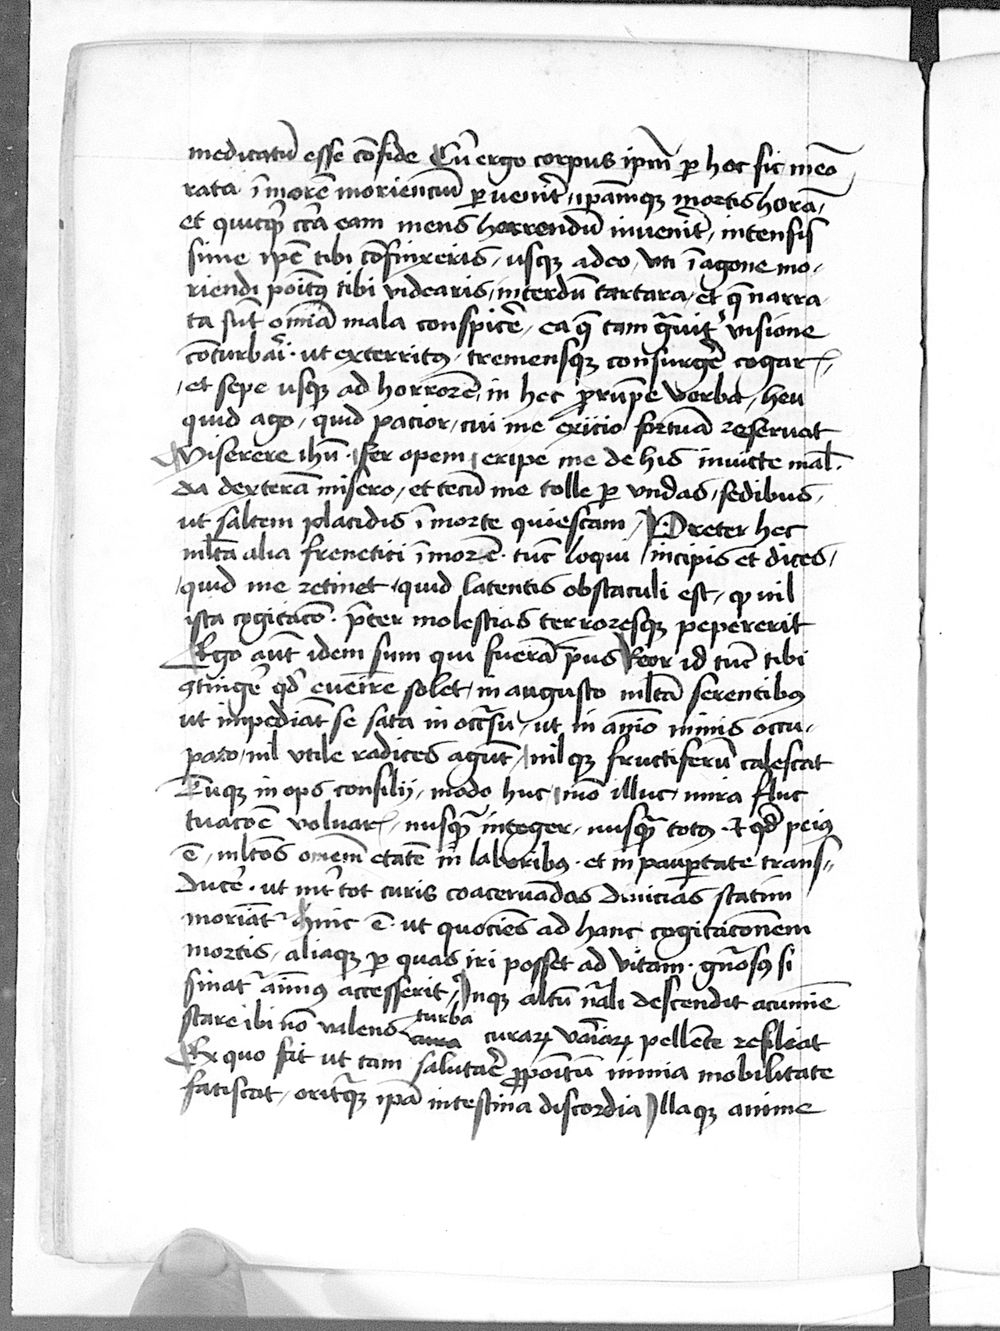 medicatū esse cōfide Cū ergo corpus ipm̄ ꝑ hec sic meō
rata ī morē moriencium ꝑuenīt, ipamqꝫ mortis horā,
et quicqͥd cͨa eam mens horrendū inuenīt, intensis
sime ipē tibi cōfinxeris, usqꝫ adeo, vti ī agone mo-
riendi poitꝰ tibi videaris, interdū tartara, et q̄ narra
ta sūt omīa mala conspicē, ea qꝫ tam gͣuitͬ visione
cōturbaī, ut exterritꝰ, tremensqꝫ consurgē cogar,
et sepe usqꝫ ad horrorē, in hec ꝓrūpē verba, heu
quid ago, quid pacior, cui me exicio fortūa reseruat
Miserere ihū, fer opem, eripe me de his inuicte mal̄.
da dexterā misero, et tecū me tolle ꝑ vndas, sedibus,
ut saltem placidis ī morte quiescam, Preter hec
mlta alia frenetici ī morē. tūc loqui, incipis et dices,
quid me retinet, quid latentis obstaculi est, ꝙ nil
ista cogitacō. p̄ter molestias terroresqꝫ pepererit
Ego aūt idem sum qui fuerā p̄us Reor id tūc tibi
ꝯtingē qd̄ euenire solet, in augusto mlta serentibꝰ
ut impediāt se sata in occͬsu, ut in anīo nimis occu-
pato, nil vtile radices agūt, nilqꝫ fructiferū calescat
Tuqꝫ inops consilij, modo huc, mō illuc, mira fluc
tuacōe voluar, nusqͣ integer, nusqͣ totꝰ. Et qd̄ peiꝰ
ē, mltos omēm etatē in laboribꝰ. et in pauꝑtate trans-
ducē. ut int̄ tot curis coaceruādas diuicias statim
moriāt. hinc ē. ut quociēs ad hanc cogitacōnem
mortis, aliaqꝫ ꝑ quas iri posset ad vitam. gn̄osꝰ si
sinatͬ anīmꝰ accesserit, Inqꝫ altū nͣli descendit acumīe
stare ibi nō valens turba cura curaꝝ vaīaꝝ pellēte resileat
Ex quo fit ut tam salutarē ꝓpoitū nimia mobilitate
fatiscat, oriturqꝫ ipā intestina discordia Illaqꝫ anime